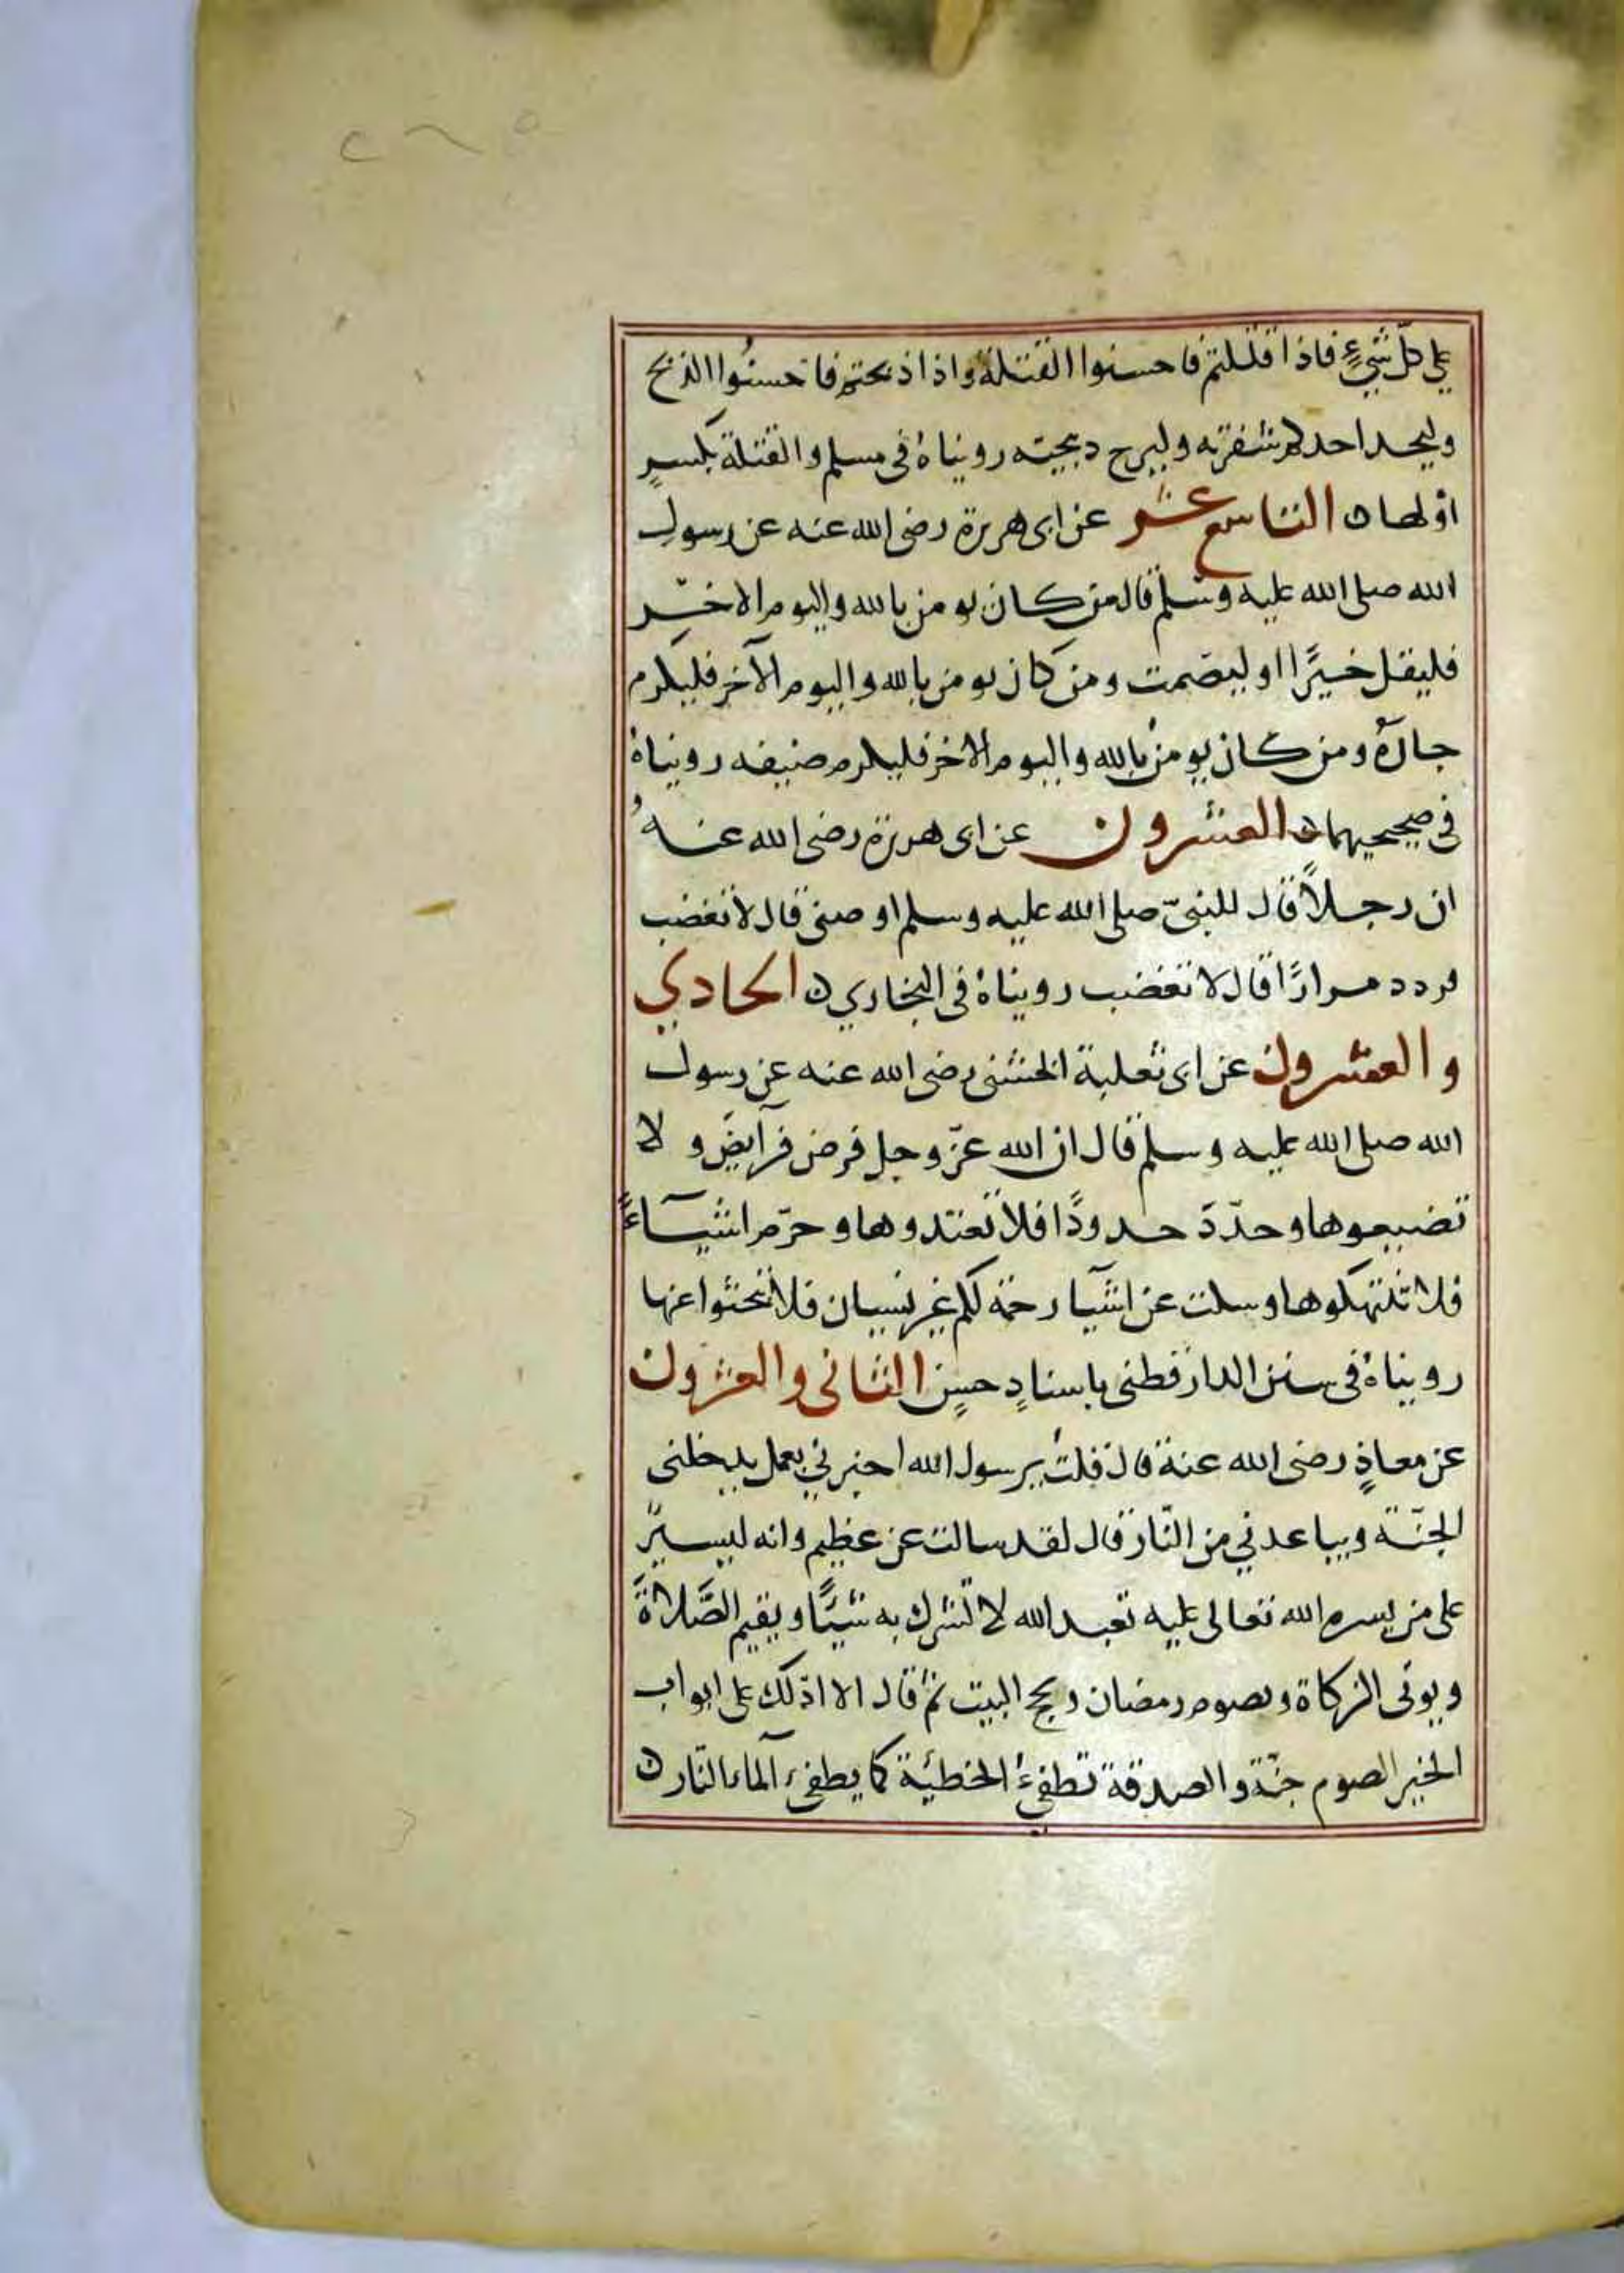 ٢٦٥
على كلّ شيءٍ فاذا قتلتم فاحسنوا القتلة واذا ذبحتم فاحسنُوا الذبح
وليحد احدكم شفرته وليرح دبيحته رويناهُ في مسلم والقتلة بكسرٍ
اوّلها ن التاسع عشر عن ابى هريرة رضى الله عنه عن رسول
الله صلى الله عليه وسلم قال من كان يومن بالله واليوم الاخر
فليقل خيرًا او ليصمت ومن كان يومن بالله واليوم الآخر فليكرم
جارهُ ومن كان يومن بالله واليوم الاخر فليكرم ضيفه رويناهُ
في صحيحيهما ن العشرون عن ابى هريرة رضى الله عنهُ
ان رجلاً قال للنبيّ صلى الله عليه وسلم اوصنى قال لا تغضب
فردد مرارًا قال لا تغضب رويناهُ في البخاري ن الحادي
والعشرون عن ابى ثعلبة الخشنى رضى الله عنه عن رسول
الله صلى الله عليه وسلم قال ان الله عزّ وجل فرض فرآيضَ ولا
تضيعوها وحدّدَ حدودًا فلا تعتدوها وحرّم اشيآءً
فلا تنتهكوها وسكت عن اشيآ رحمة لكم غير نسيان فلا تبحثوا عنها
رويناهُ في سنن الدارقطنى باسنادٍ حسنٍ الثانى والعشرون
عن معاذٍ رضى الله عنة قال قلتُ يرسول الله اخبرني بعمل يدخلنى
الجنّة ويباعدني من النّار قال لقد سالت عن عظيم وانه ليسيرٌ
على من يسره الله تعالى عليه تعبد الله لا تشرك به شيًا ويقيم الصَّلاةَ
ويوتى الزكاة وتصوم رمضان وتحج البيت ثمّ قال الا ادّلك على ابواب
الخير الصوم جنّة والصدقة تطفئُ الخطيئة كما يطفئ المآء النّار ن